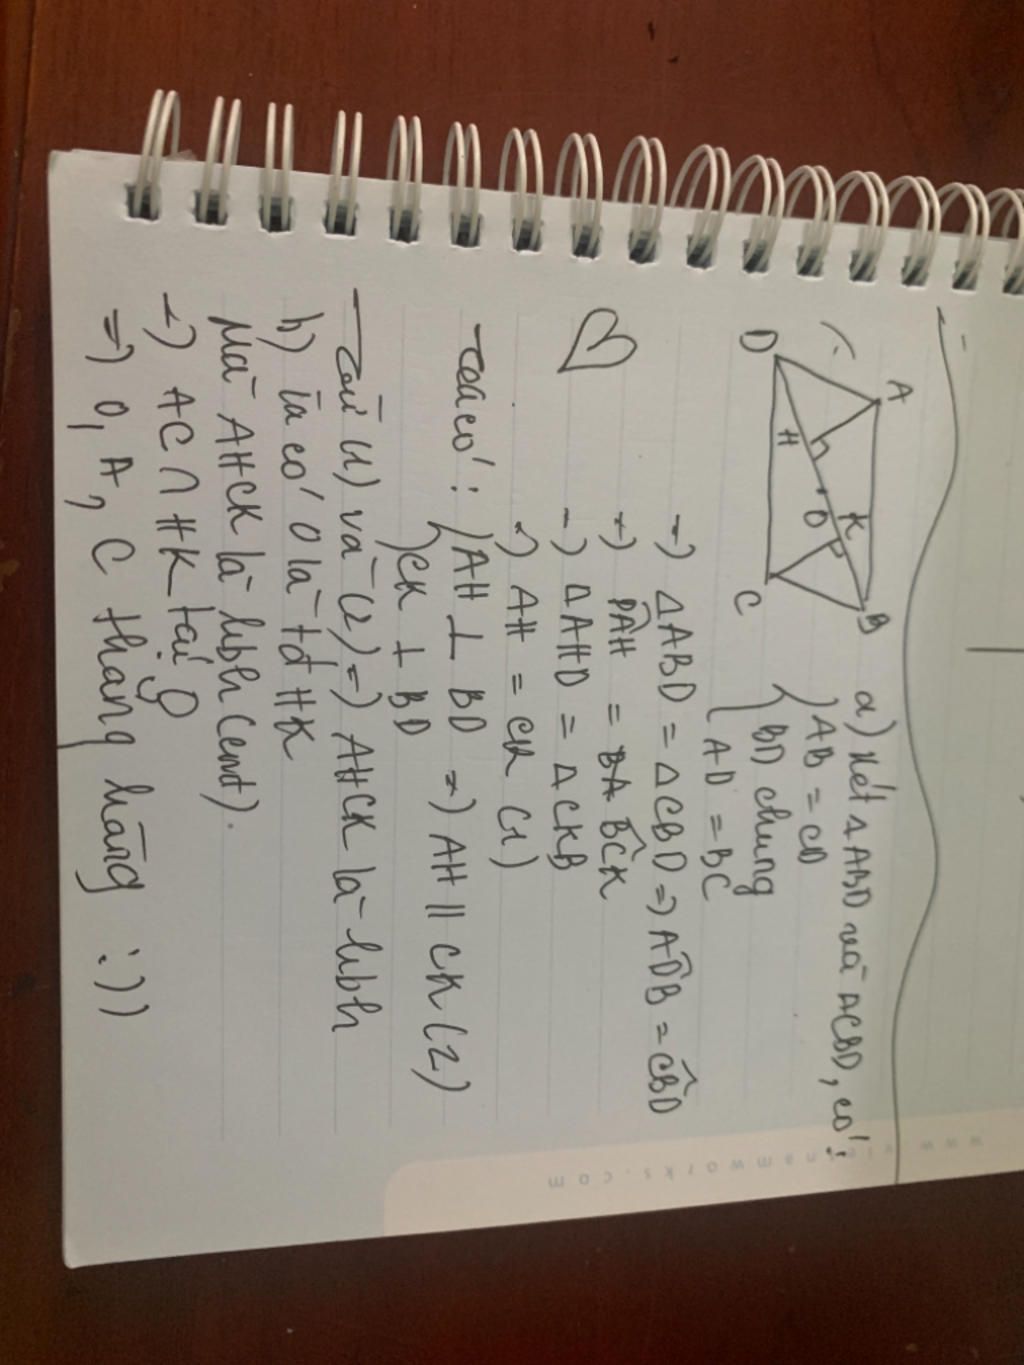 A
B
K
O
H
D
C
a) Xét ΔABD và ΔCBD, có:
AB = CD
BD chung
AD = BC
=) ΔABD = ΔCBD =) ADB̂ = CB̂D
=) DÂH = BĈK
=) ΔAHD = ΔCKB
=) AH = CK (1)
Ta có: AH ⊥ BD =) AH // CK (2)
CK ⊥ BD
Từ (1) và (2) =) AHCK là hbh
b) Ta có O là tđ HK
Mà AHCK là hbh (cmt).
=) AC ∩ HK tại O
=) O, A, C thẳng hàng :))
www.vietnamworks.com